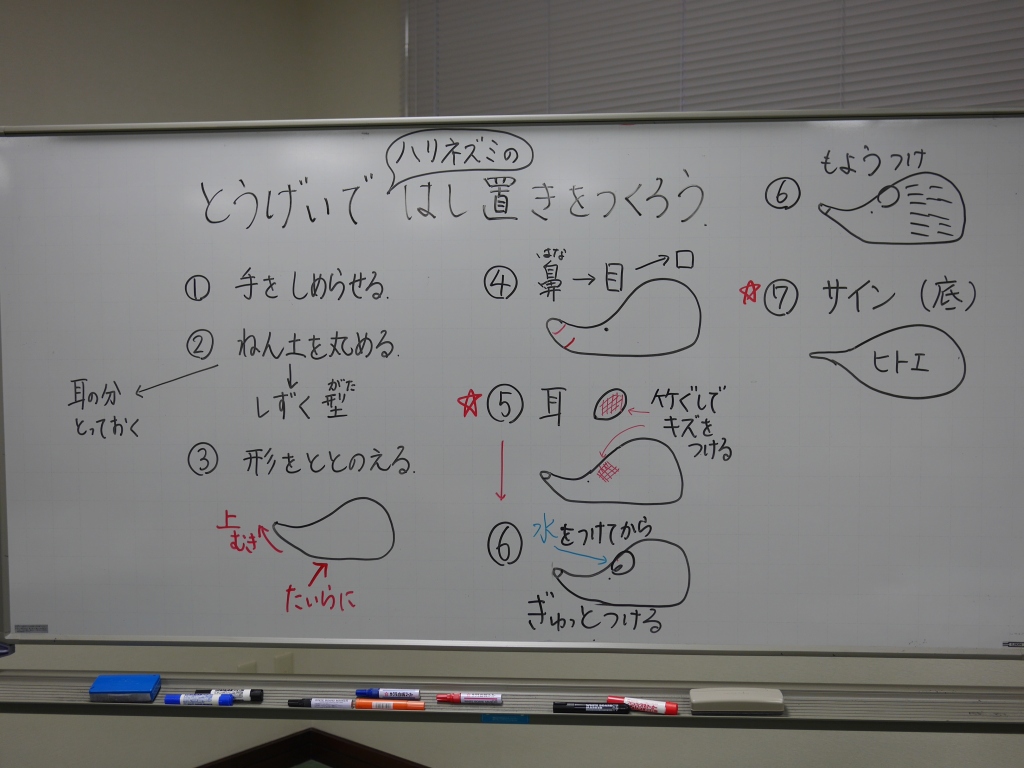 ハリネズミの
とうげいで はし置きをつくろう.
① 手をしめらせる.
② ねん土を丸める.
耳の分
とっておく
しずく型
がた
③ 形をととのえる.
上
むき
たいらに
④ 鼻→目→口
はな
☆⑤ 耳
竹ぐしで
キズを
つける
⑥ 水をつけてから
ぎゅっとつける
⑥ もようつけ
☆⑦ サイン(底)
ヒトエ